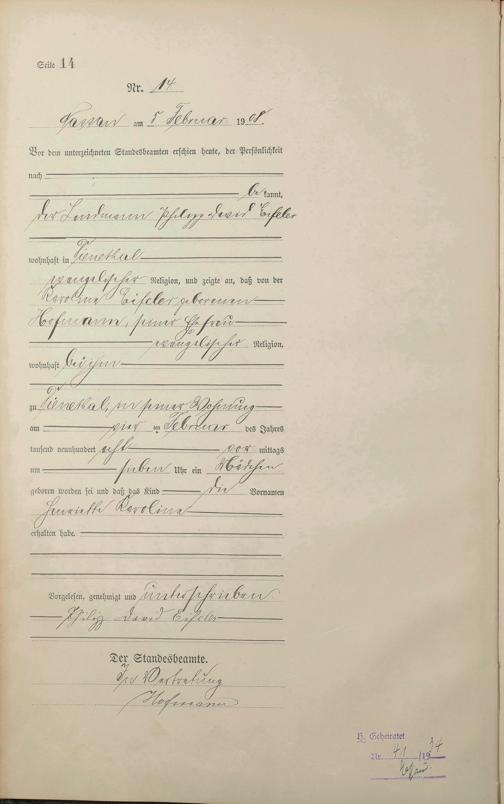 Seite 14
Nr. 14
am 5 Februar 1908.
Vor dem unterzeichneten Standesbeamten erschien heute, der Persönlichkeit
nach
bekannt,
der Landmann Philipp David Eiseler
wohnhaft in Tienethal
evangelischer Religion, und zeigte an, daß von der
Karoline Eiseler geborenen
Hofmann, seiner Ehefrau
evangelischer Religion,
wohnhaft bei ihm
zu Tienethal, in seiner Wohnung
am vier ten Februar des Jahres
tausend neunhundert acht vor mittags
um sieben Uhr ein Mädchen
geboren worden sei und daß das Kind die Vornamen
Henriette Karoline
erhalten habe.
Vorgelesen, genehmigt und unterschrieben
Philipp David Eiseler
Der Standesbeamte.
In Vertretung
Hofmann
H. Geheiratet
Nr. 41 /1934